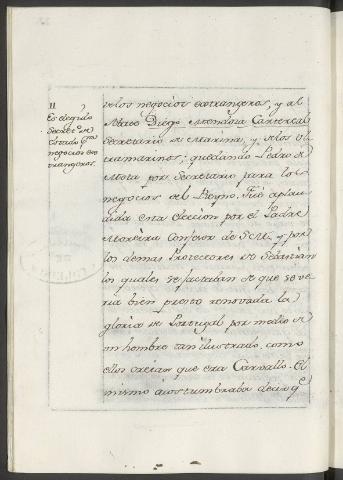 11
Es elegido
Secret.º de
Estado p.ª
negocios ex
trangeros.
de los negocios extrangeros, y al
Diego Mendoza Cortereal
Secretario de Marina, y de los Ul
tramarinos; quedando Pedro de
Mota por Secretario para los
negocios del Reyno. Fue aplau
dida esta eleccion por el Padre
Moreira Confesor de S.M. y por
los demas Protectores de Sebastian
los quales se jactaban de que se ve
ria bien presto renovada la
gloria de Portugal por medio de
un hombre tan ilustrado, como
ellos creian que era Carvallo. El
mismo acostumbraba decir q.e